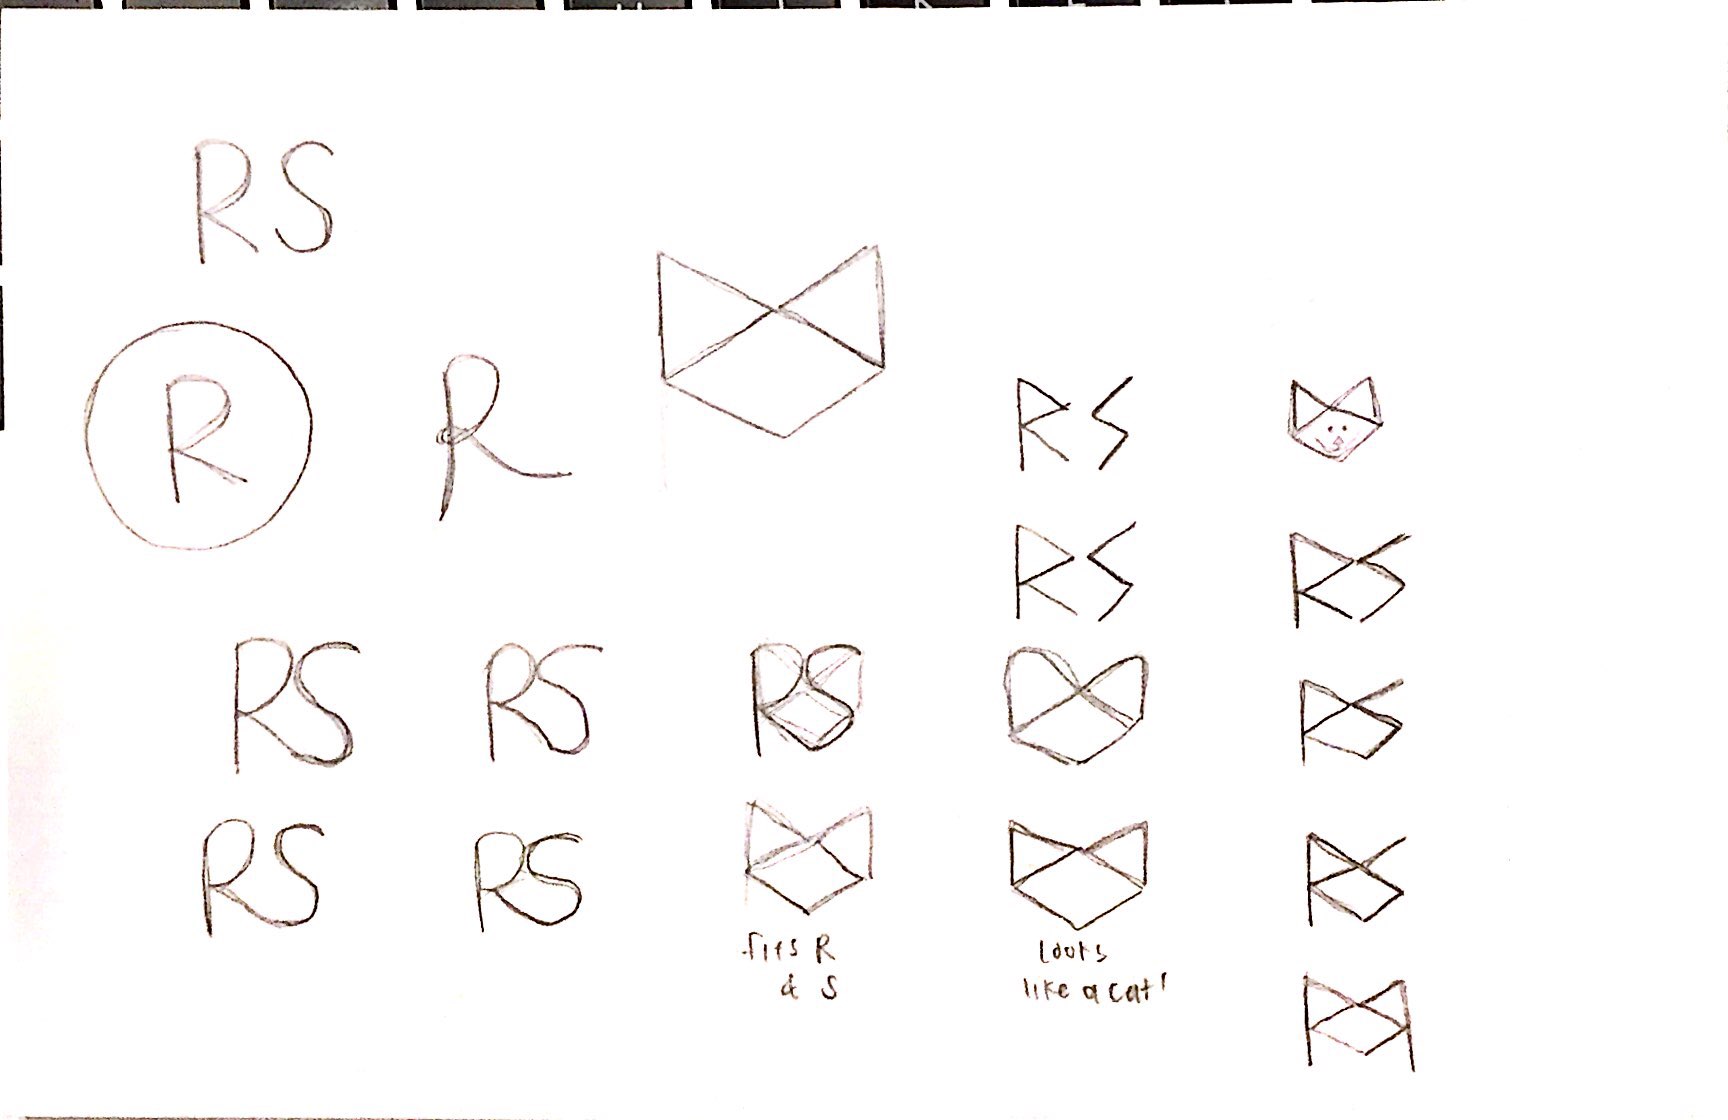 RS
R
R
RS
RS
RS
RS
RS
RS
RS
RS
RS
RS
fits R
& S
looks
like a cat!